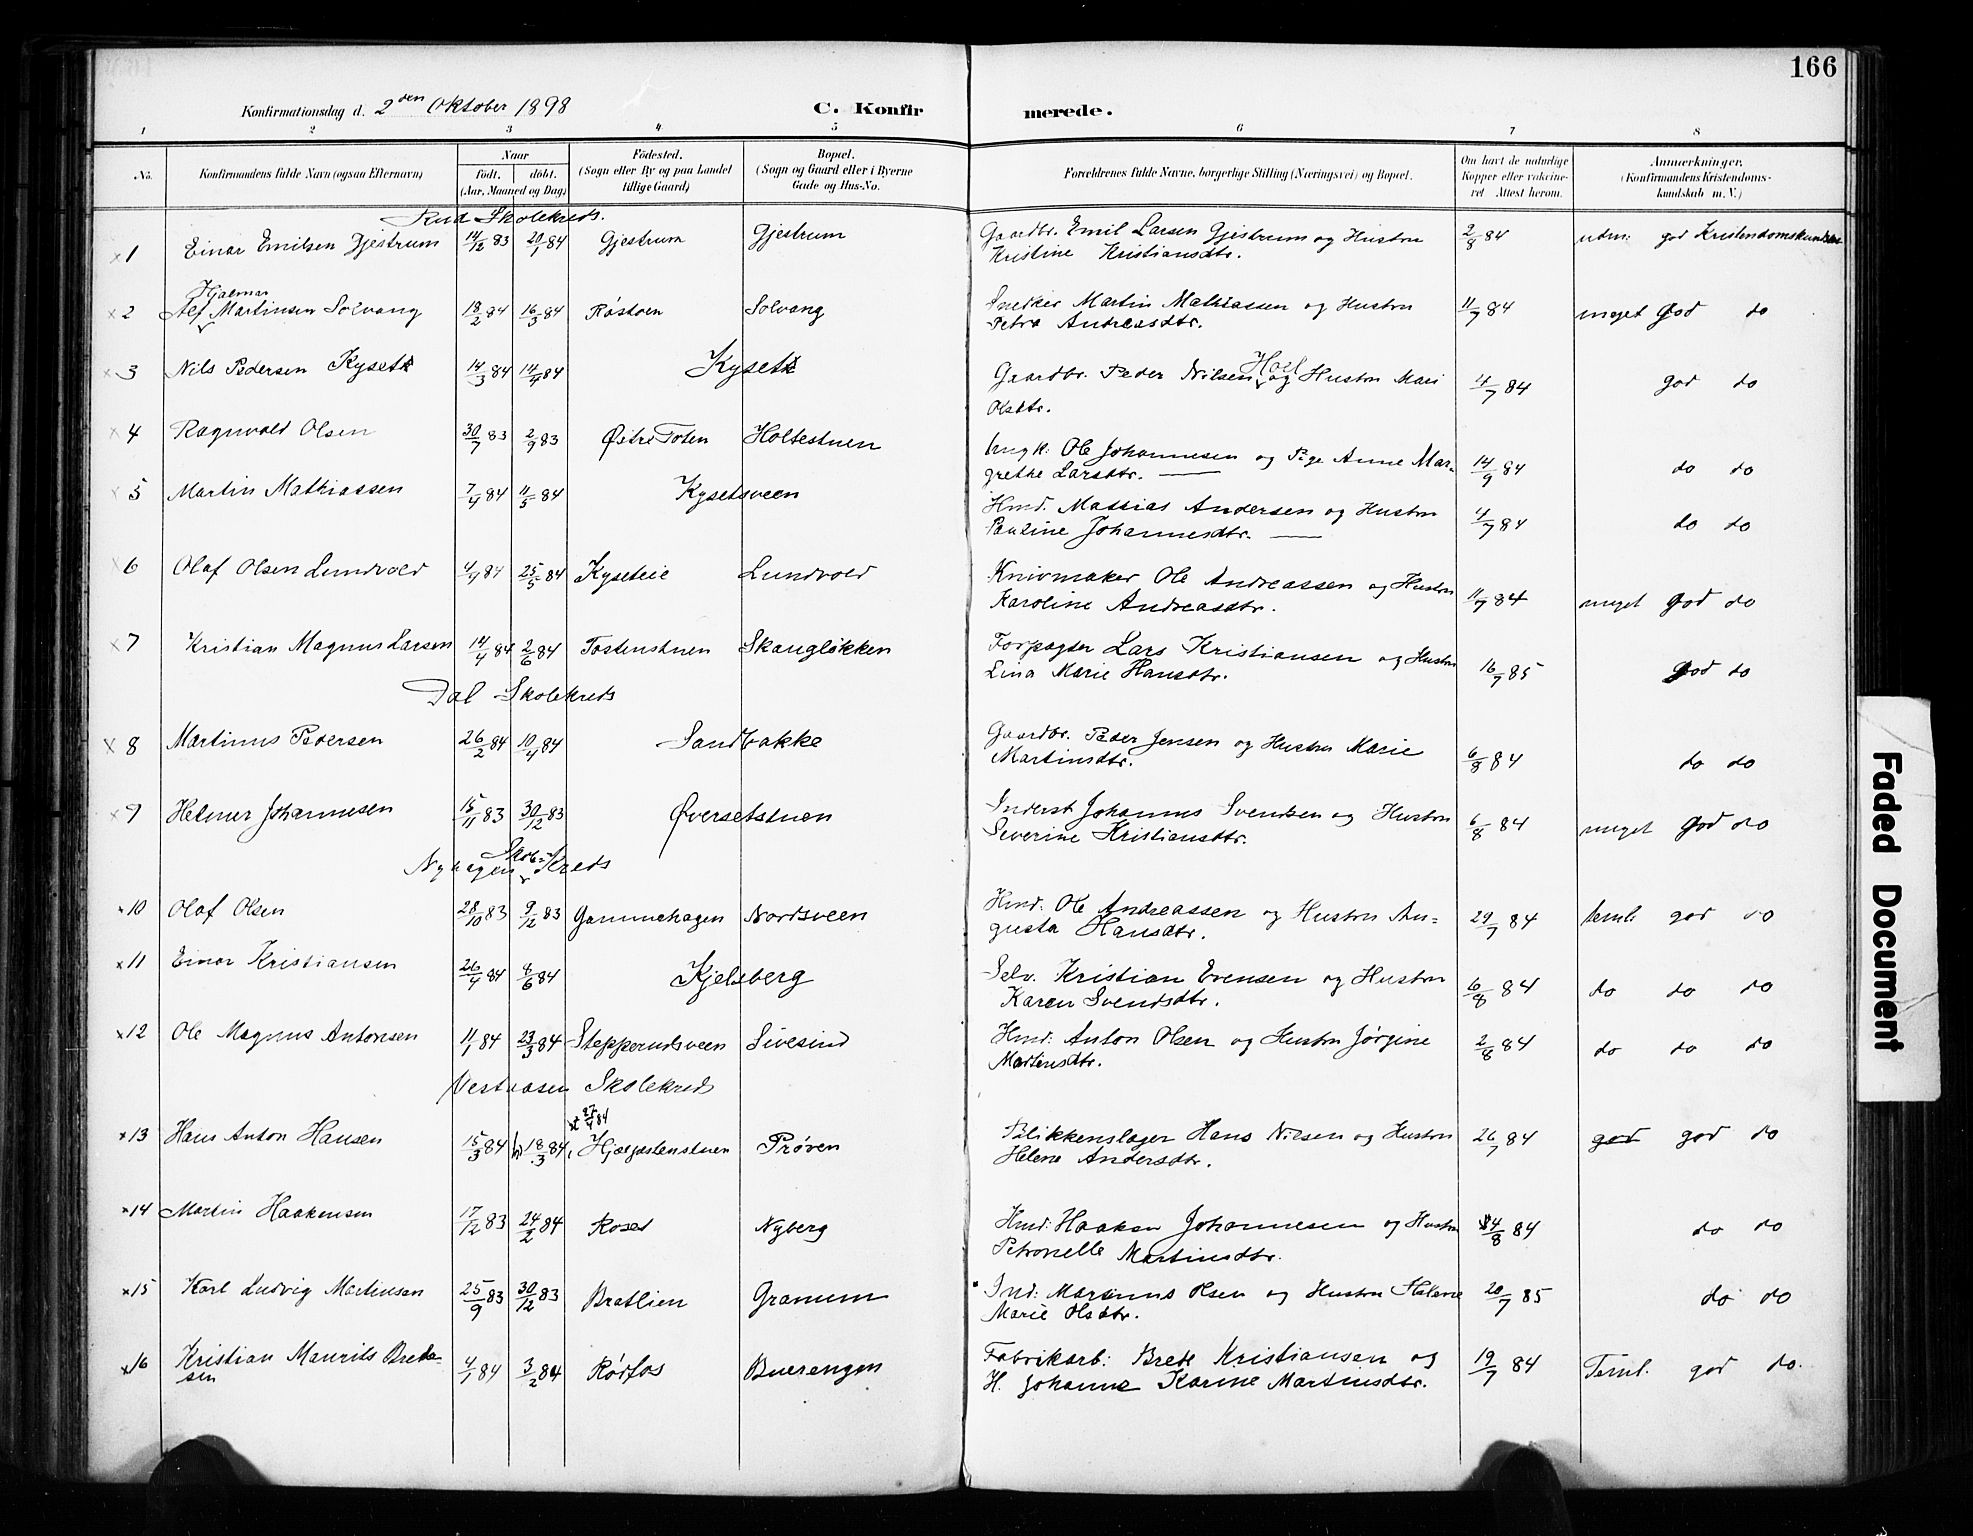 166
Konfirmationsdag d. 2den Oktober 1898 C. Konfirmerede.
1 2 3 4 5 6 7 8
No. Konfirmandens fulde Navn (ogsaa Efternavn) Naar født. døbt. (Aar, Maaned og Dag) Fødested. (Sogn eller By og paa Landet tillige Gaard) Bopæl. (Sogn og Gaard eller i Byerne Gade og Hus-No. Forældrenes fulde Navne, borgerlige Stilling (Næringsvei) og Bopæl. Om havt de naturlige Kopper eller vaccineret Attest herom. Anmærkninger. (Konfirmandens Kristendomskundskab m. V.)
Rud Skolekreds.
×1 Einar Emilsen Gjestrum 14/12 83 20/1 84 Gjestrum Gjestrum Gaardbr. Emil Larsen Gjestrum og Hustru 2/8 84 udm: god Kristendomskundskab
Kristine Kristiansdtr.
Hjalmar
×2 Alf Martinsen Solvang 18/2 84 16/3 84 Røstøen Solvang Snedker Martin Mathiassen og Hustru 11/7 84 meget god do
Petra Andreasdtr.
×3 Nils Pedersen Kyset 14/3 84 14/4 84 Kyset Gaardbr. Peder Nilsen Hoel og Hustru Mari 4/7 84 god do
Olsdtr.
×4 Ragnvald Olsen 30/7 83 2/9 83 Østre Toten Holtestuen Ungk: Ole Johannesen og Pige Anne Mar-
grethe Larsdtr. 14/9 84 do do
×5 Martin Mathiassen 7/4 84 11/5 84 Kysetsveen Hmd. Mathias Andersen og Hustru 4/7 84 do do
Pauline Johannesdtr.
×6 Olaf Olsen Lundvold 4/4 84 25/5 84 Kyseteie Lundvold Knivmaker Ole Andreassen og Hustru 11/7 84 meget god do
Karoline Andreasdtr.
×7 Kristian Magnus Larsen 14/4 84 2/6 84 Tostenstuen Skougløkken Forpagter Lars Kristiansen og Hustru 16/7 85 god do
Lina Marie Hansdtr.
Dal Skolekreds
×8 Martinus Pedersen 26/2 84 10/4 84 Sandbakke Gaardbr. Peder Jensen og Hustru Marie 6/8 84 do do
Martinsdtr.
×9 Helmer Johannesen 15/11 83 30/12 83 Øversetstuen Inderst Johannes Svendsen og Hustru 6/8 84 meget god do
Severine Kristiansdtr.
Nyhagen Skole Kreds
×10 Olaf Olsen 28/10 83 9/12 83 Gammehagen Nordsveen Hmd: Ole Andreassen og Hustru Au-
gusta Hansdtr. 29/7 84 temli god do
×11 Einar Kristiansen 26/4 84 8/6 84 Kjelsberg Selv. Kristian Evensen og Hustru 6/8 84 do do do
Karen Svendsdtr.
×12 Ole Magnus Antonsen 11/1 84 23/3 84 Stepperudsveen Sivesind Hmd: Anton Olsen og Hustru Jørgine 2/8 84 do do do
Martinsdtr.
Vestaasen Skolekreds
×13 Hans Anton Hansen 15/3 84 18/3 84 27/4 84 Hjelgestenstuen Prøven Blikkenslager Hans Nilsen og Hustru 26/7 84 god god do
Helene Andersdtr.
×14 Martin Haakensen 17/12 83 24/2 84 Roset Nyberg Hmd: Haaken Johannesen og Hustru 4/8 84 do do
Petronelle Martinsdtr.
×15 Karl Ludvig Martinsen 25/9 83 30/12 83 Bratlien Granum Ind: Martinus Olsen og Hustru Helene 20/7 85 do do
Marie Olsdtr.
×16 Kristian Maurits Brede-
sen 4/1 84 3/2 84 Rødfos Buerengen Fabrikarb: Brede Kristiansen og 19/7 84 Teml. god do.
H. Johanne Karine Martinsdtr.
Faded Document